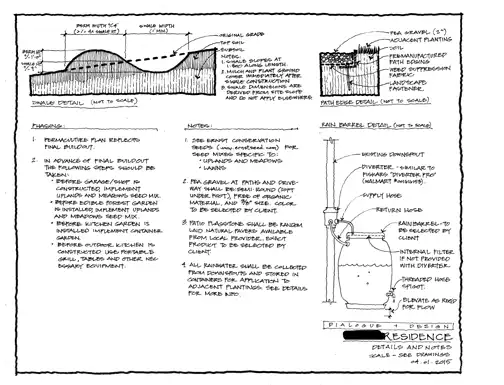 BERM WIDTH
SWALE WIDTH
ORIGINAL GRADE
TOP SOIL
SUBSOIL
NOTES:
1. SWALE SLOPES AT
ALONG LENGTH.
2. MULCH AND PLANT GROUND
COVER IMMEDIATELY AFTER
SWALE CONSTRUCTION
3. SWALE DIMENSIONS ARE
DERIVED FROM SITE SLOPE
AND DO NOT APPLY ELSEWHERE
SWALE DETAIL (NOT TO SCALE)
PEA GRAVEL (2")
ADJACENT PLANTING
SOIL
PREMANUFACTURED
PATH EDGING
WEED SUPPRESSION
FABRIC
LANDSCAPE
FASTENER
PATH EDGE DETAIL (NOT TO SCALE)
PHASING:
1. PERMACULTURE PLAN REFLECTS
FINAL BUILDOUT.
2. IN ADVANCE OF FINAL BUILDOUT
THE FOLLOWING STEPS SHOULD BE
TAKEN:
• BEFORE GARAGE/SHOP IS
CONSTRUCTED, IMPLEMENT
UPLANDS AND MEADOWS SEED MIX.
• BEFORE EDIBLE FOREST GARDEN
IS INSTALLED, IMPLEMENT UPLANDS
AND MEADOWS SEED MIX.
• BEFORE KITCHEN GARDEN IS
INSTALLED IMPLEMENT CONTAINER
GARDEN.
• BEFORE OUTDOOR KITCHEN IS
CONSTRUCTED USE PORTABLE
GRILL, TABLES AND OTHER NEC-
ESSARY EQUIPMENT.
NOTES:
1. SEE ERNST CONSERVATION
SEEDS (www.ernstseed.com) FOR
SEED MIXES SPECIFIC TO:
• UPLANDS AND MEADOWS
• LAWNS
2. PEA GRAVEL AT PATHS AND DRIVE-
WAY SHALL BE SEMI-ROUND (SOFT
UNDER FOOT), FREE OF ORGANIC
MATERIAL, AND 3/8" SIZE. COLOR
TO BE SELECTED BY CLIENT.
3. PATIO FLAGSTONE SHALL BE RANDOM
LAID NATURAL PAVERS AVAILABLE
FROM LOCAL PROVIDER. EXACT
PRODUCT TO BE SELECTED BY
CLIENT.
4. ALL RAINWATER SHALL BE COLLECTED
FROM DOWNSPOUTS AND STORED IN
CONTAINERS FOR APPLICATION TO
ADJACENT PLANTINGS. SEE DETAILS
FOR MORE INFO.
RAIN BARREL DETAIL (NOT TO SCALE)
EXISTING DOWNSPOUT
DIVERTER - SIMILAR TO
FISKARS "DIVERTER PRO"
SUPPLY HOSE
RETURN HOSE
RAIN BARREL - TO
BE SELECTED BY
CLIENT
INTERNAL FILTER
IF NOT PROVIDED
WITH DIVERTER.
THREADED HOSE
SPIGOT.
ELEVATE AS REQ'D
FOR FLOW
DIALOGUE + DESIGN
RESIDENCE
DETAILS AND NOTES
SCALE - SEE DRAWINGS
04.01.2015